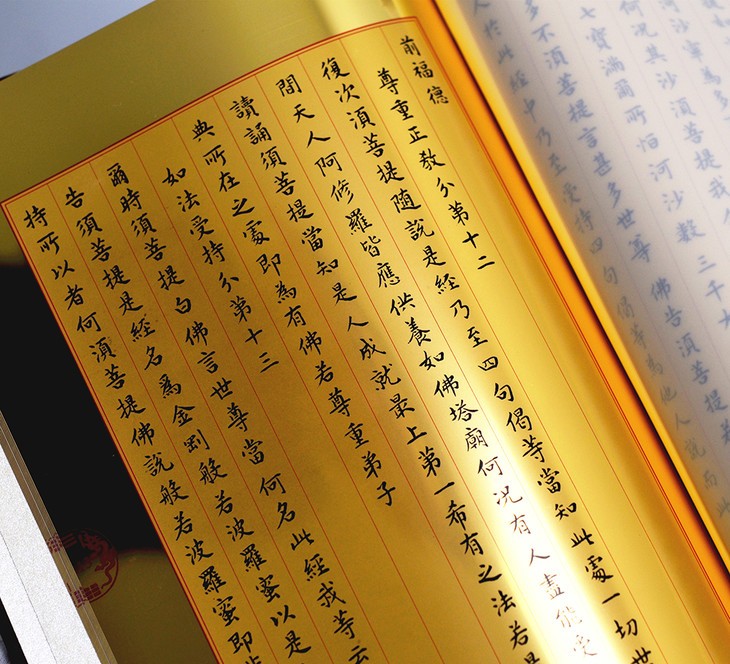 河沙寧為多
何況其沙須菩提我
七寶滿爾所恒河沙數三千大
多不須菩提言甚多世尊佛告須菩提若
人於此經中乃至受持四句偈等為他人說而此
前福德
尊重正教分第十二
復次須菩提隨說是經乃至四句偈等當知此處一切世
間天人阿修羅皆應供養如佛塔廟何況有人盡能受
讀誦須菩提當知是人成就最上第一希有之法若是
典所在之處即為有佛若尊重弟子
如法受持分第十三
爾時須菩提白佛言世尊當何名此經我等云
告須菩提是經名為金剛般若波羅蜜以是
持所以者何須菩提佛說般若波羅蜜即